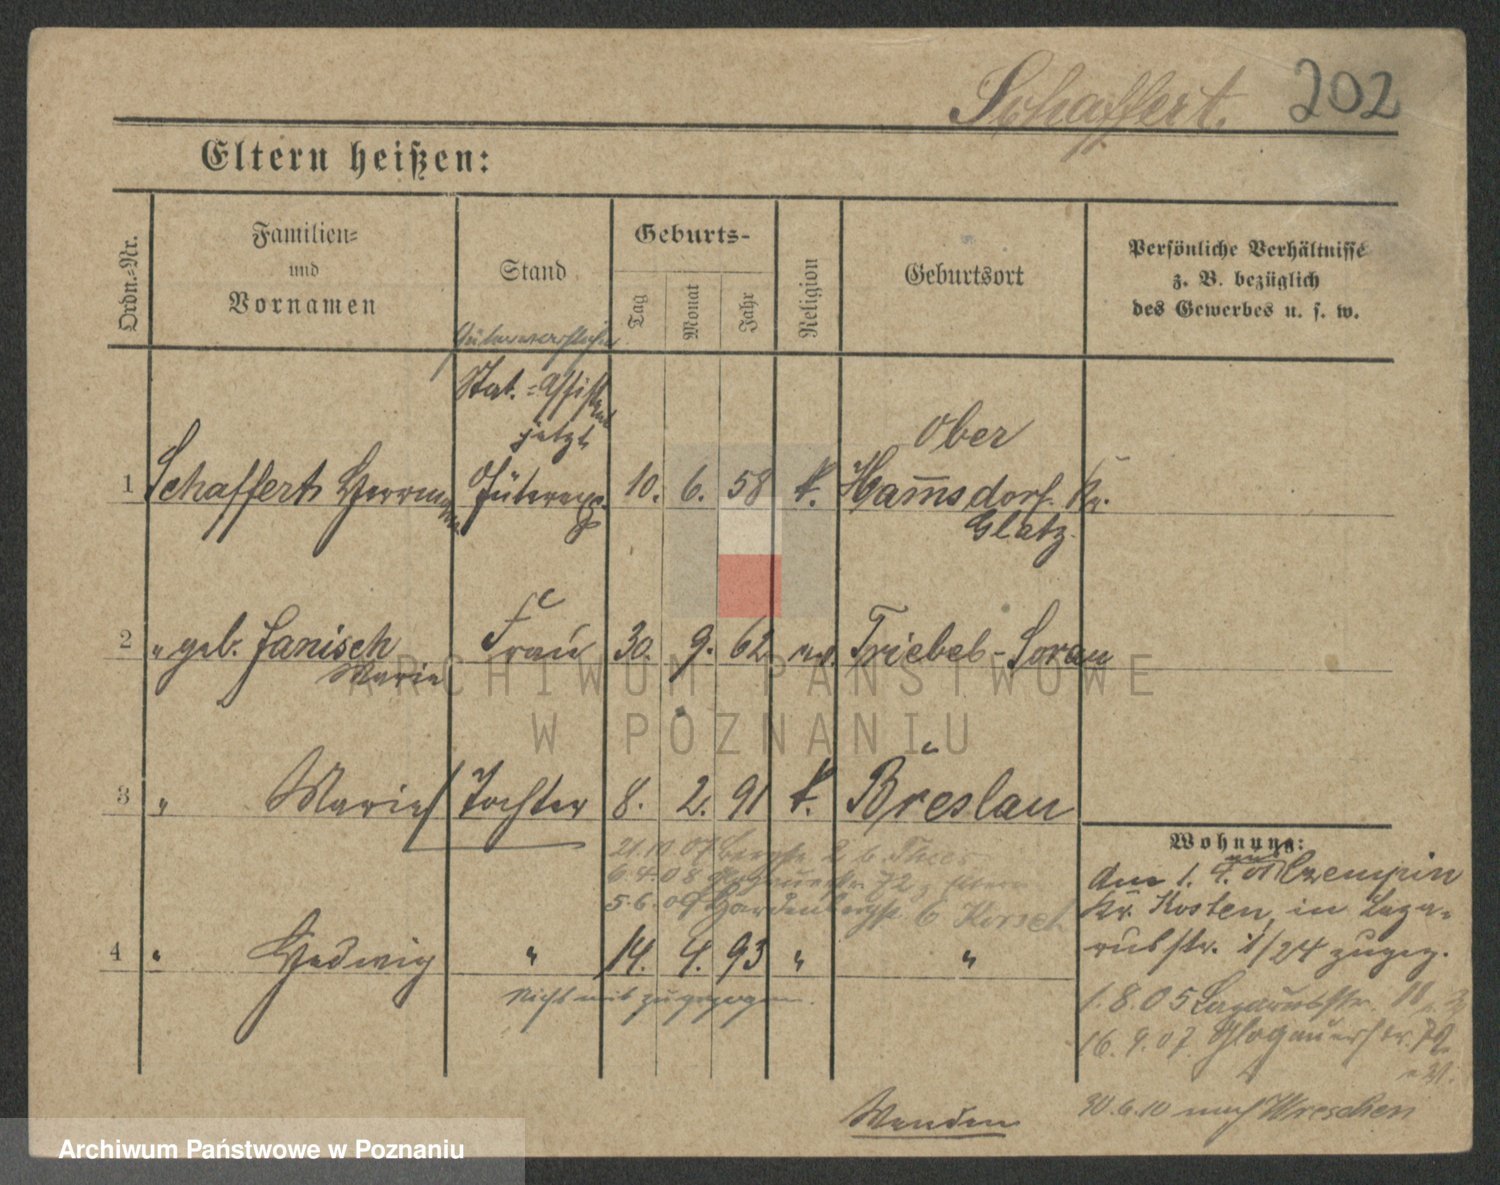 Schaffert. 202
Eltern heißen:
Ordn.=Nr.
Familien=
und
Vornamen
Stand
Geburts-
Tag
Monat
Jahr
Religion
Geburtsort
Persönliche Verhältnisse
z. B. bezüglich
des Gewerbes u. s. w.
Stat.=Assistent
jetzt
Ober
1 Schaffert Herrmann Güterexp. 10. 6. 58 k. Ham̄sdorf Kr.
Glatz.
2 " geb. Janisch Frau 30. 9. 62 ev. Triebel-Sorau
Marie
3 " Marie Tochter 8. 2. 91 k. Breslau
21.10.07 Bergstr. 2 b. Thees
6.4.08 Glogauerstr. 72 z. Eltern
5.6.09 Hardenbergstr. 6 Korsch
4 " Hedwig " 14. 4. 93 " "
Nicht mit zugezogen.
Wohnung:
den 1. 4. 01 Czempin
Kr. Kosten, in Laza-
russtr. 1/24 zugez.
1.8.05 Lazarusstr. 18
16.9.07. Glogauerstr. 72
30.6.10 nach Wreschen
Wenden
ARCHIWUM PAŃSTWOWE
W POZNANIU
Archiwum Państwowe w Poznaniu